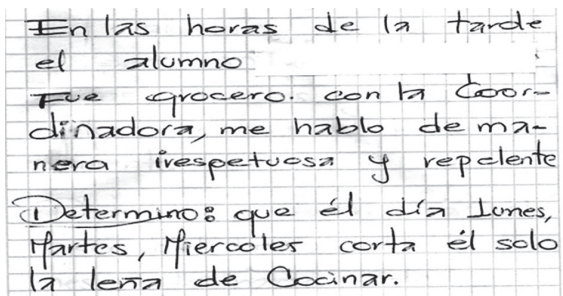 En las horas de la tarde
el alumno
Fue grocero. con la Coor-
dinadora, me hablo de ma-
nera irespetuosa y repelente
① Determino: que él día Lunes,
Martes, Miercoles corta él solo
la leña de Cocinar.